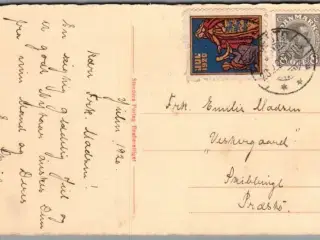 Julen 192
Kære Frk. Madsen!
En rigtig glædelig Jul og
et godt Nytaar ønskes Dem
fra min Mand og Deres
Stenders Forlag
JUL
1920
DANMARK
Frk. Emilie Madsen
"Vestergaard"
Skibbinge
Præstø